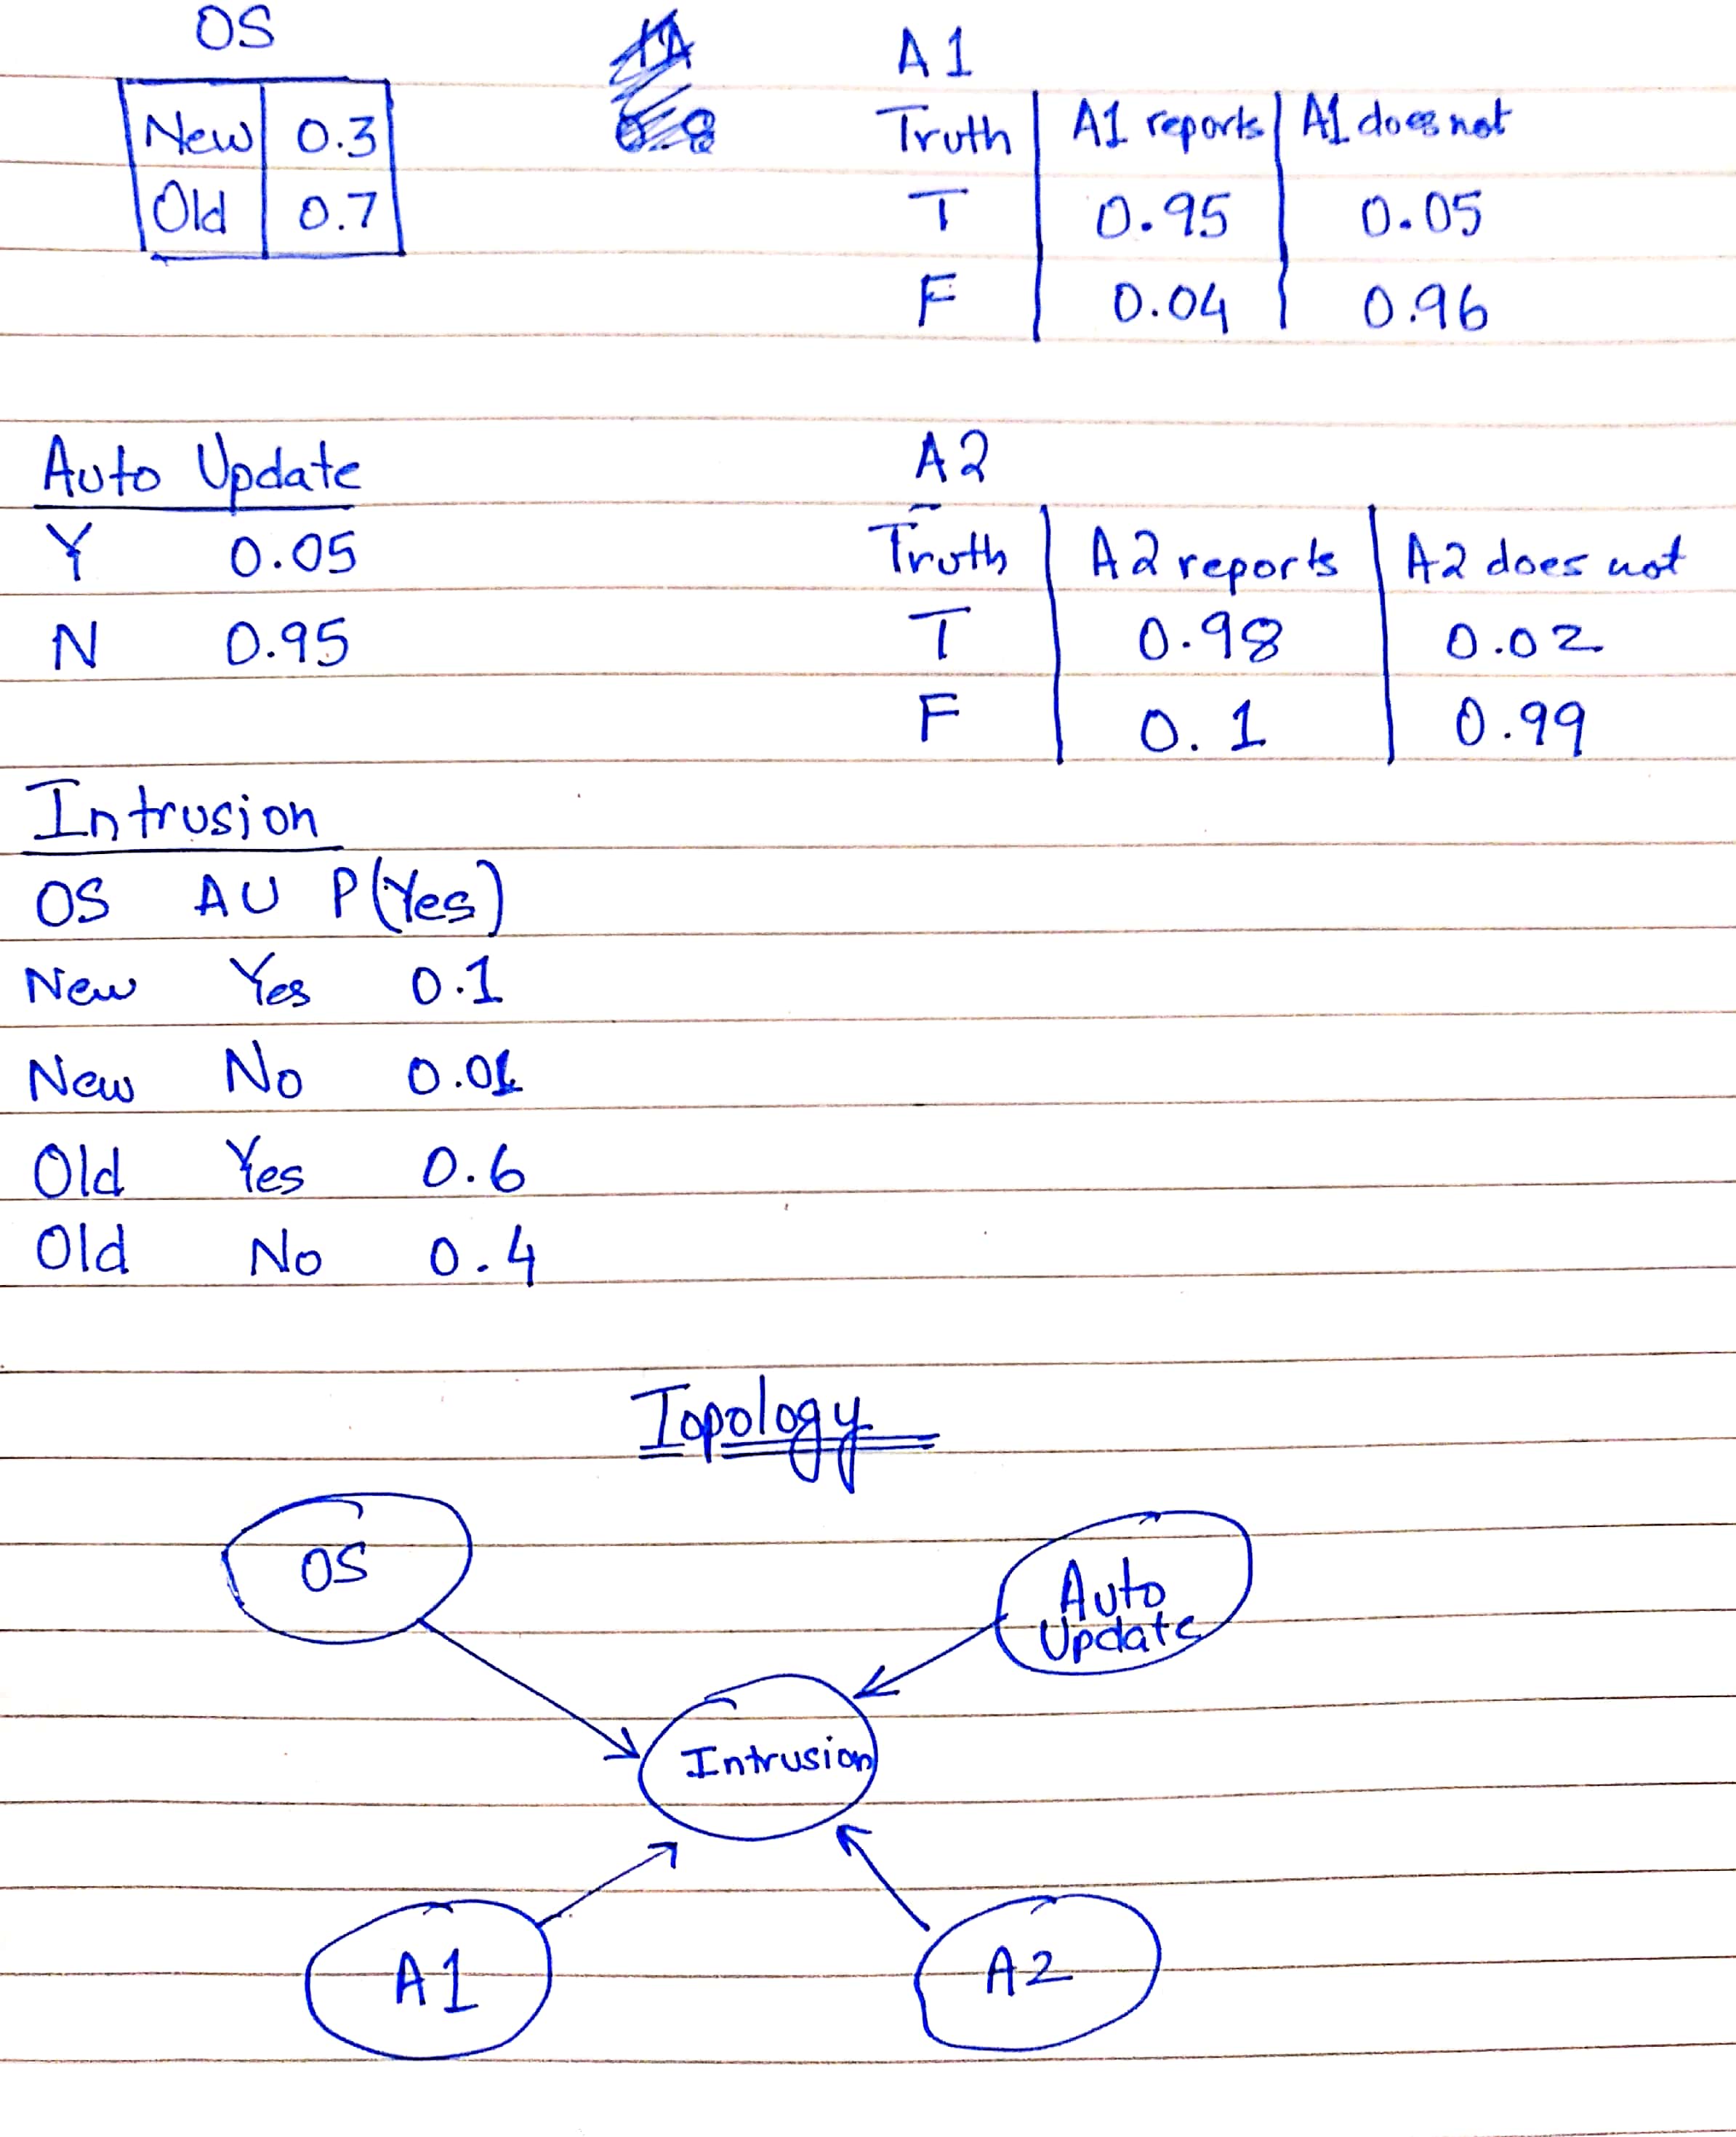 OS
New 0.3
Old 0.7
A1
Truth A1 reports A1 does not
T 0.95 0.05
F 0.04 0.96
Auto Update
Y 0.05
N 0.95
A2
Truth A2 reports A2 does not
T 0.98 0.02
F 0.1 0.99
Intrusion
OS AU P(Yes)
New Yes 0.1
New No 0.01
Old Yes 0.6
Old No 0.4
Topology
OS
Auto
Update
Intrusion
A1
A2